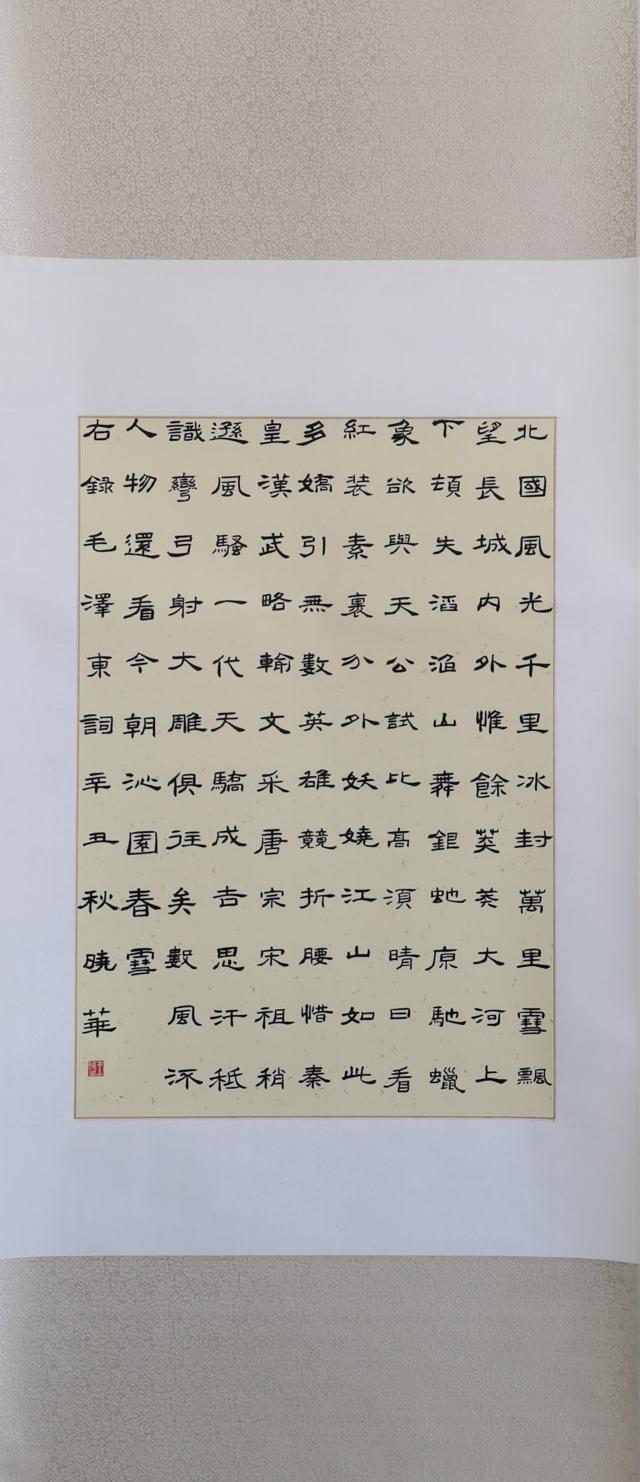 北國風光千里冰封萬里雪飄
望長城内外惟餘莽莽大河上
下頓失滔滔山舞銀蛇原馳蠟
象欲與天公試比高須晴日看
紅装素裹分外妖嬈江山如此
多嬌引無數英雄競折腰惜秦
皇漢武略輸文采唐宗宋祖稍
遜風騷一代天驕成吉思汗秖
識彎弓射大雕俱往矣數風流
人物還看今朝沁園春雪
右録毛澤東詞辛丑秋曉華